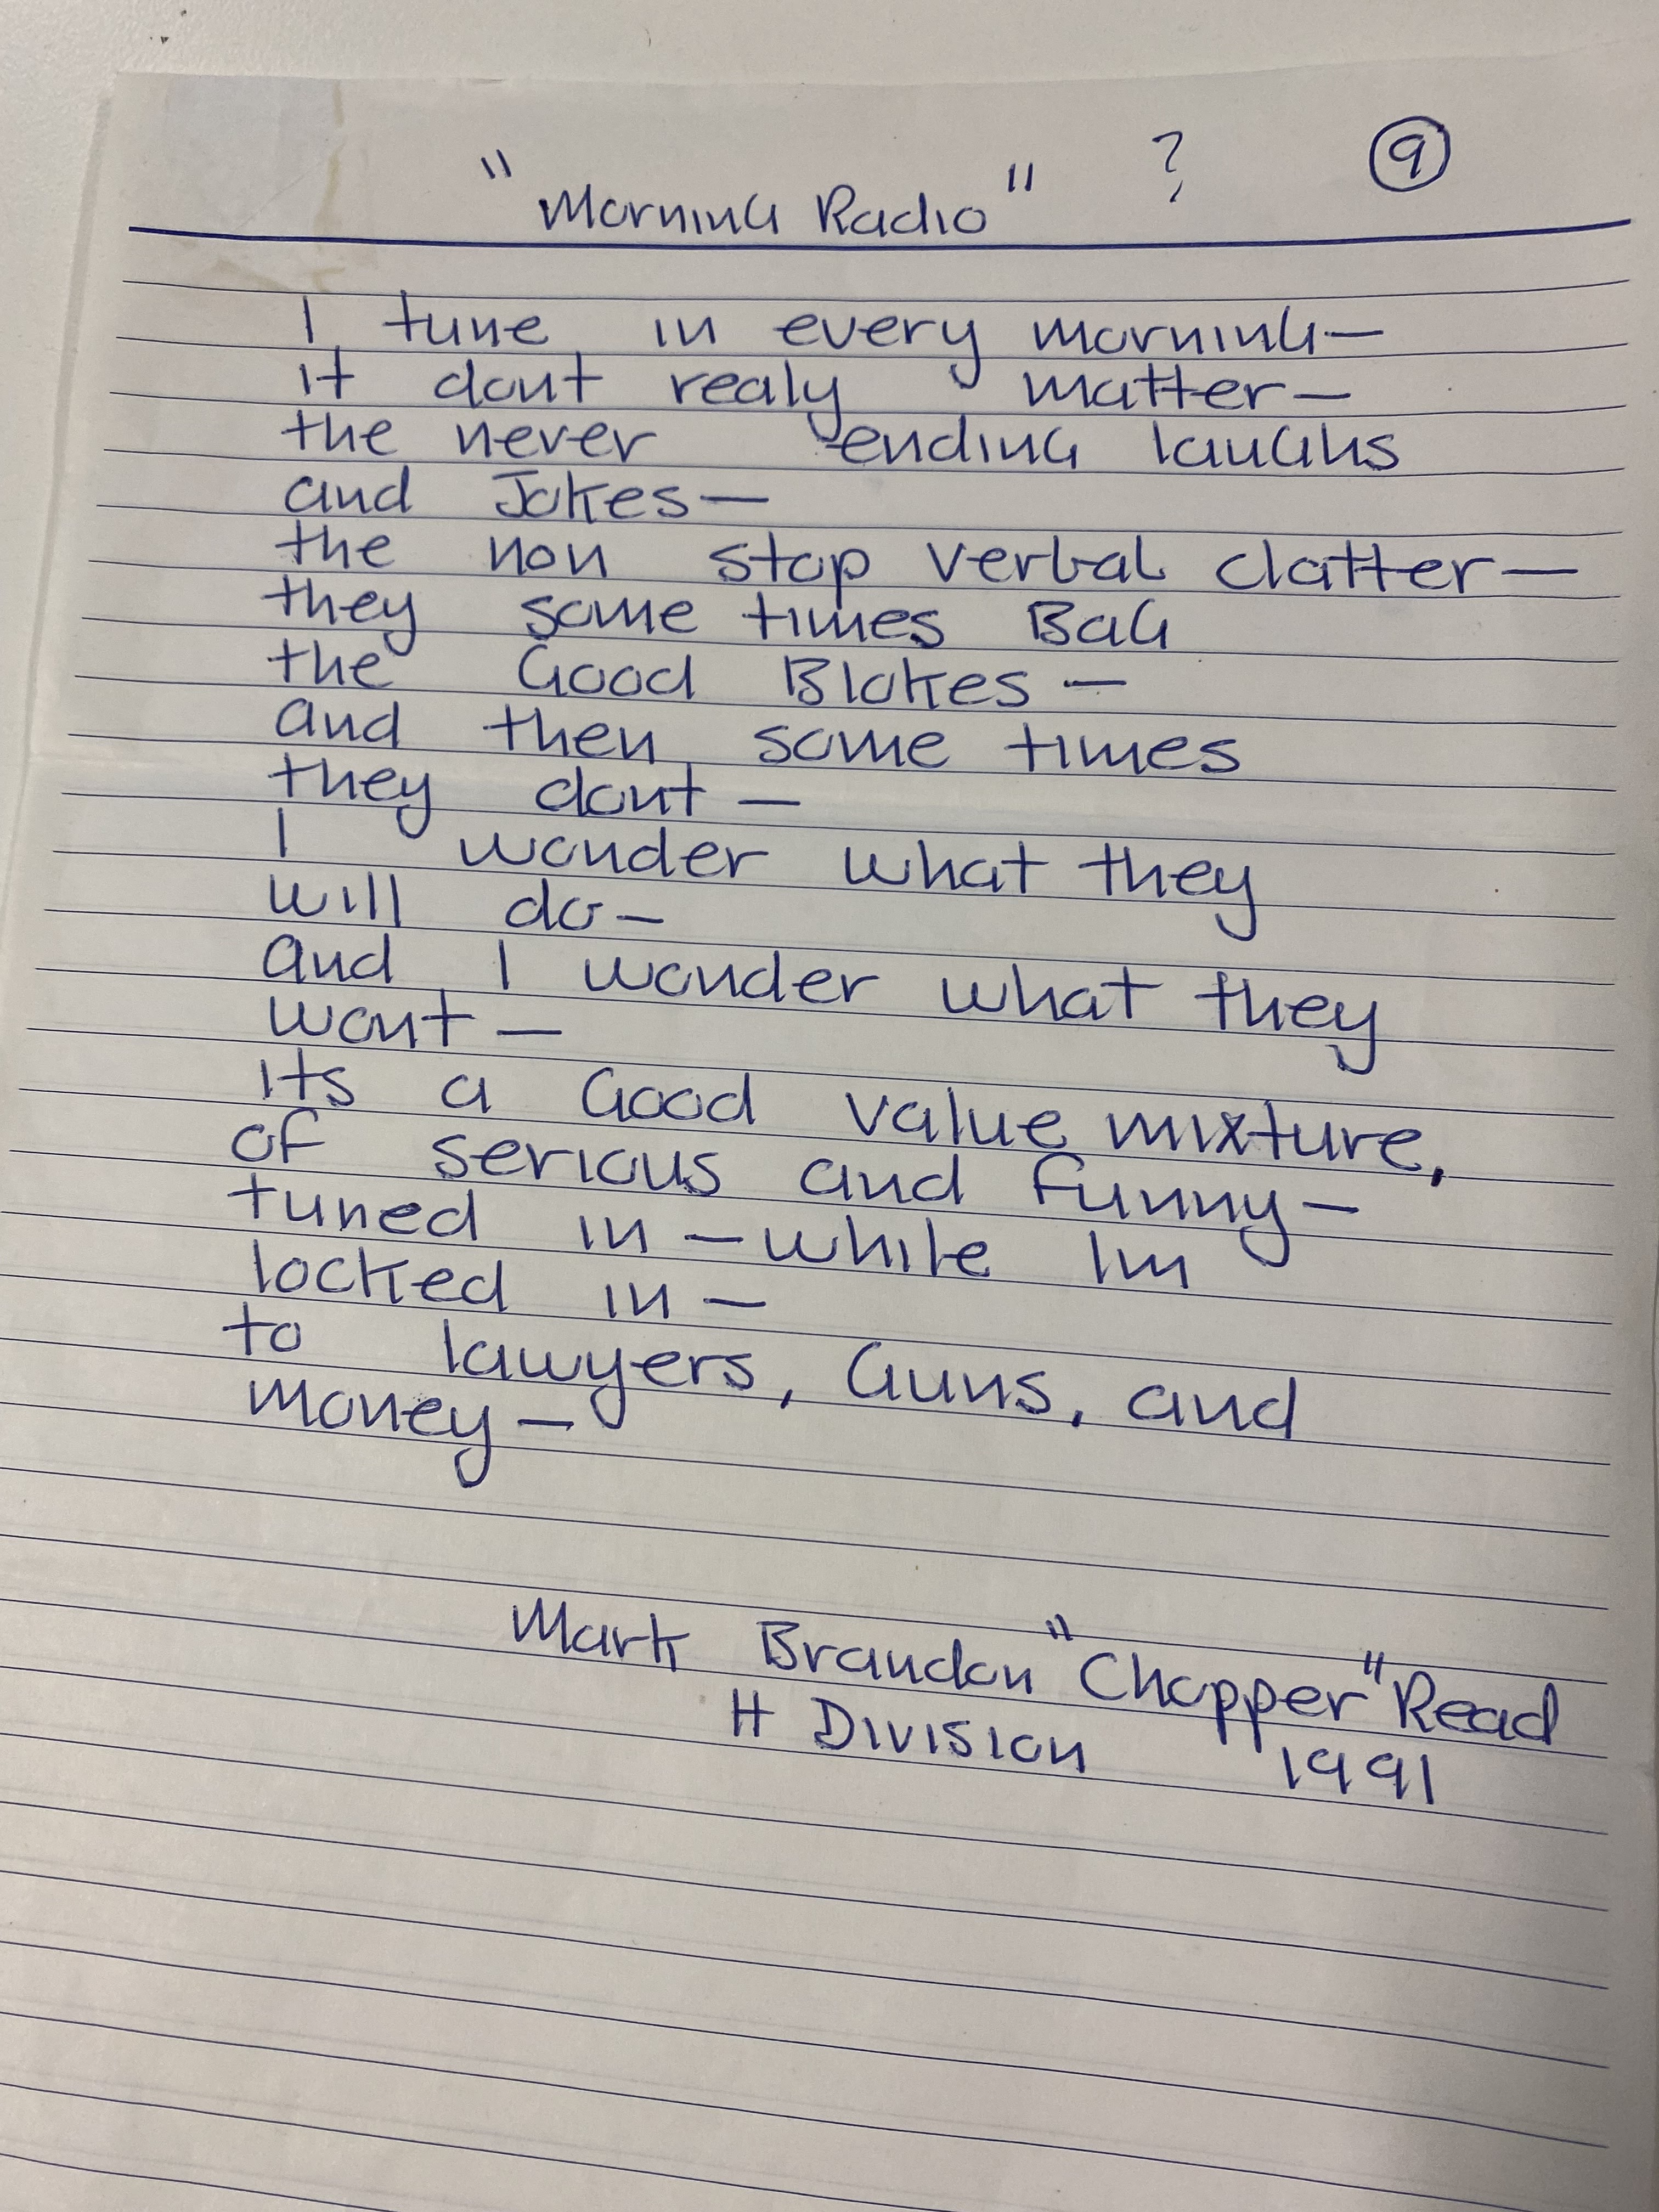 "Morning Radio" ? 9
I tune in every morning—
it dont realy matter—
the never ending laughs
and Jokes—
the non stop verbal clatter—
they some times Bag
the Good Blokes—
and then some times
they dont—
I wonder what they
will do—
and I wonder what they
wont—
Its a Good value mixture,
of serious and funny—
tuned in—while Im
locked in—
to lawyers, Guns, and
money—
Mark Brandon "Chopper" Read
H Division 1991